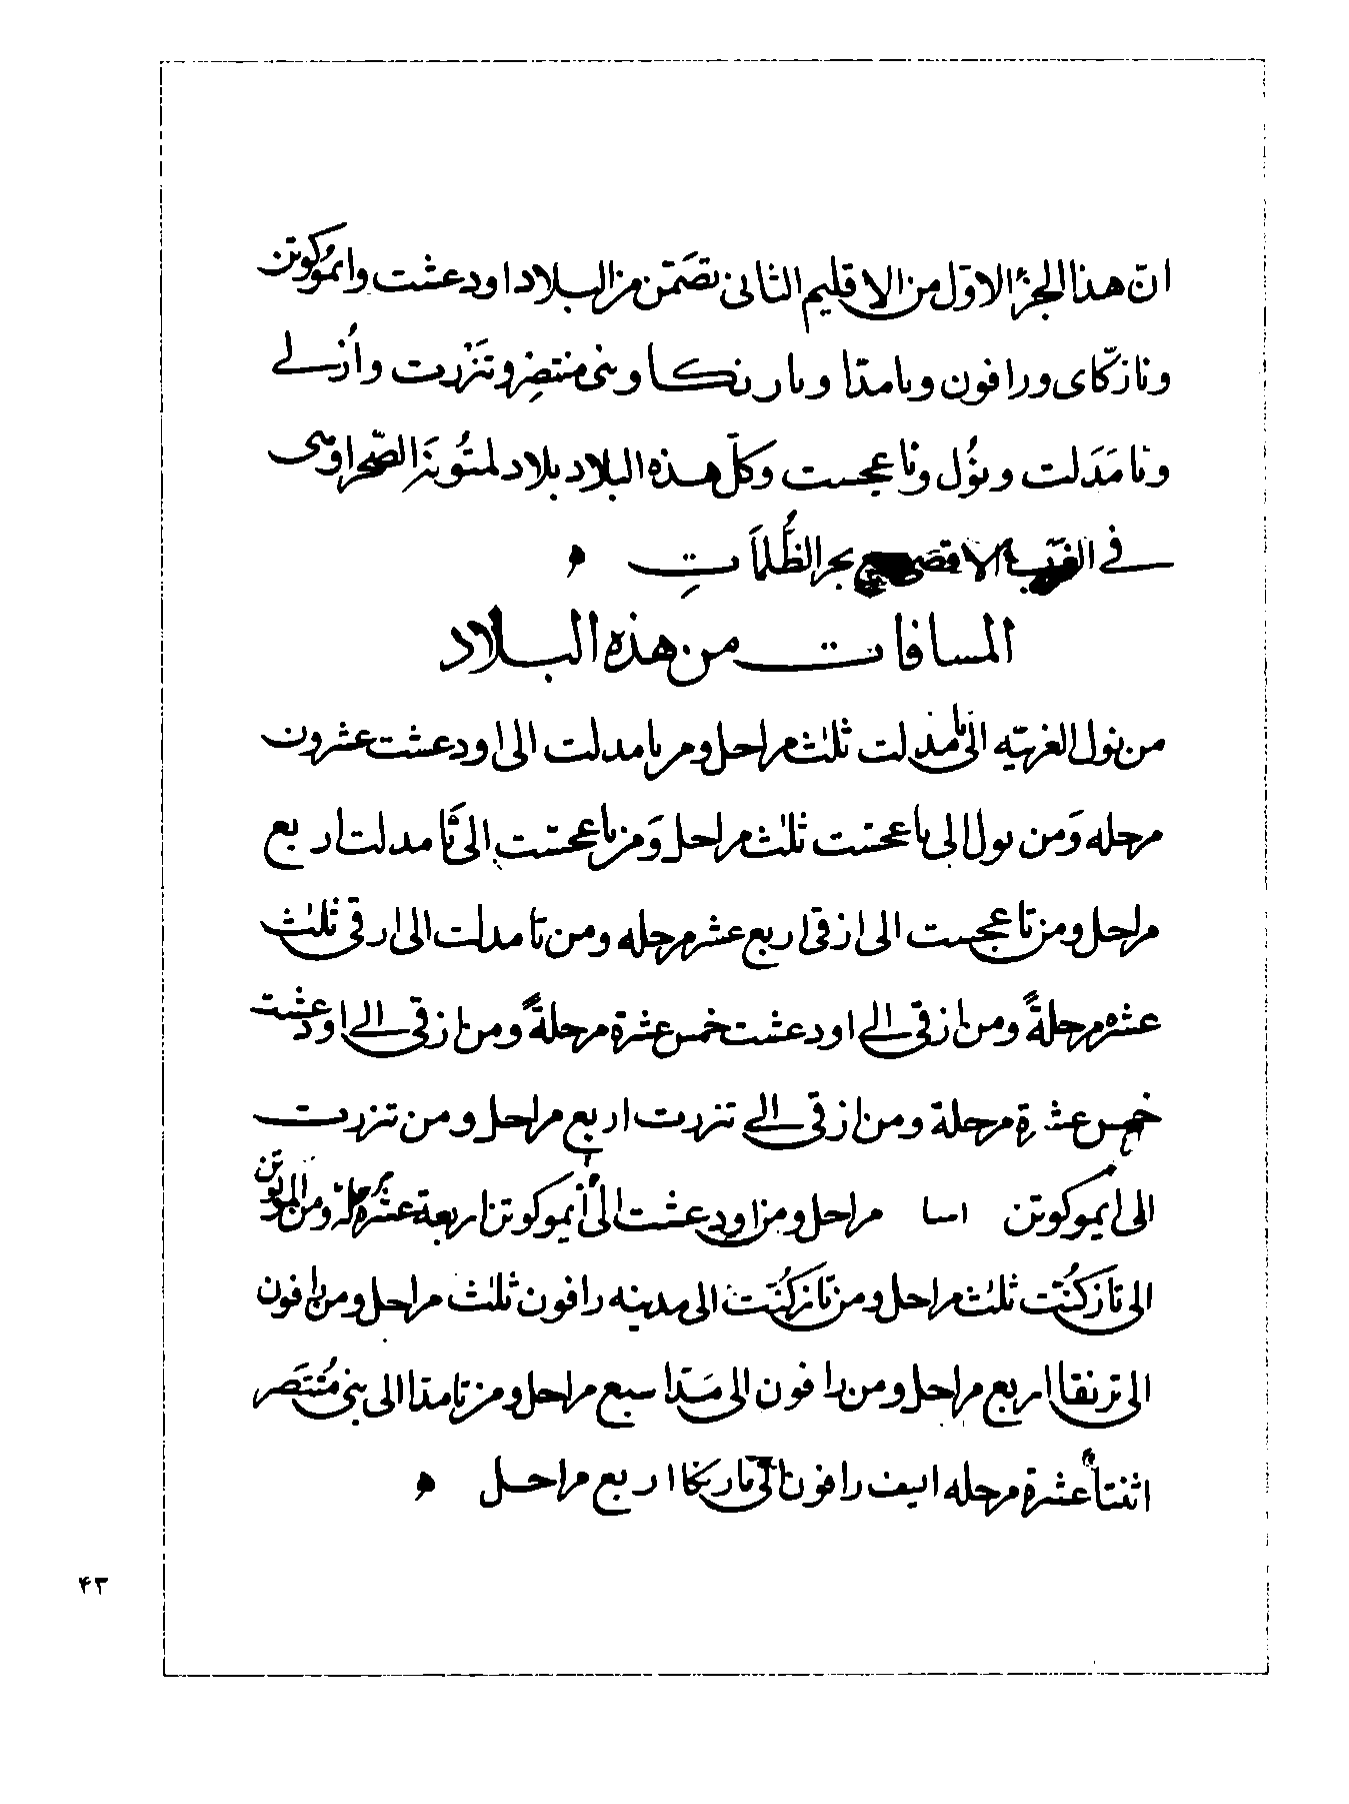 انّ هذا الجزء الاوّل من الاقليم الثانى تضمّن من البلاد اودعشت وايموكوتن
وتازكّاى ورافون وبامدّا وبارنكا وبنى منتصر وتنزرت وأزلے
وتامدَلت ونُول وتاعجست وكلّ هذه البلاد بلاد لمتُونة الصّحرا وهى
فى الغرب الاقصى بحر الظُّلمَاتِ
المسافات من هذه البلاد
من نول الغربيّه الى تامدلت ثلٰث مراحل ومن تامدلت الى اودعشت عشرون
مرحله وَمن نول الى تاعجست ثلٰث مراحل وَمن تاعجست الى تَامدلت اربع
مراحل ومن تاعجست الى ازقى اربع عشر مرحله ومن تامدلت الى ازقى ثلٰث
عشره مرحلةً ومن ازقى الے اودعشت خمس عشرة مرحلةً ومن ازقى الے اودعشت
خمس عشرة مرحلة ومن ازقى الے تنزرت اربع مراحل ومن تنزرت
الى ايموكوتن مراحل ومن اودعشت الى أيموكوتن اربعة عشرة مرحلة ومن
الى تازكُنَت ثلٰث مراحل ومن تازكُنَت الى مدينه رافون ثلٰث مراحل ومن رافون
الى ترنقا اربع مراحل ومن رافون الى مَدّا سبع مراحل ومن تامدّا الى بنى مُنتَصر
اثنتا عشرة مرحله رافون الى تارنكا اربع مراحل
۴۳